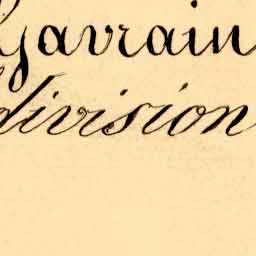 Gavrain
division